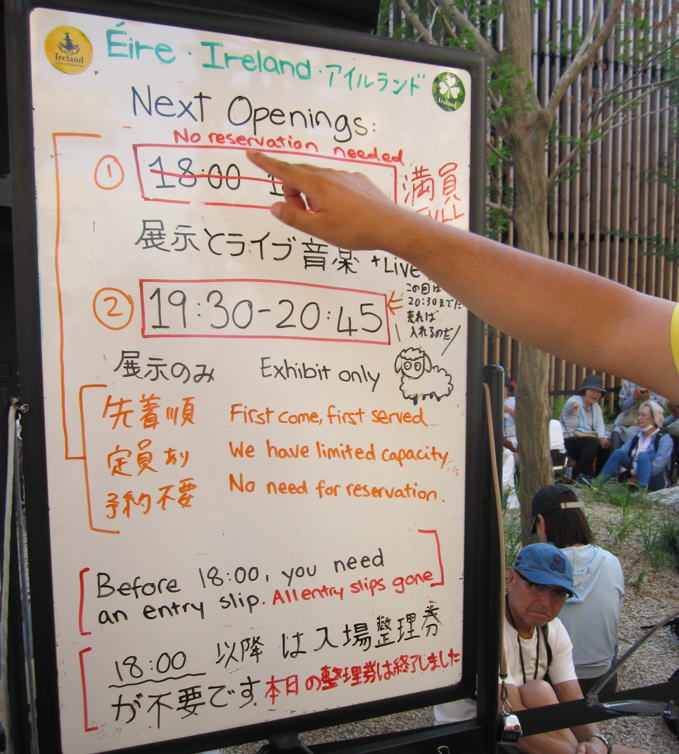 Ireland
Éire・Ireland・アイルランド
Ireland
Next Openings:
No reservation needed
① 18:00
満員
FULL
展示とライブ音楽 +Live
② 19:30-20:45
この回は
20:30までに
来れば
入れるのだ
展示のみ Exhibit only
先着順 First come, first served
定員あり We have limited capacity
予約不要 No need for reservation.
Before 18:00, you need
an entry slip. All entry slips gone
18:00 以降は入場整理券
が不要です. 本日の整理券は終了しました